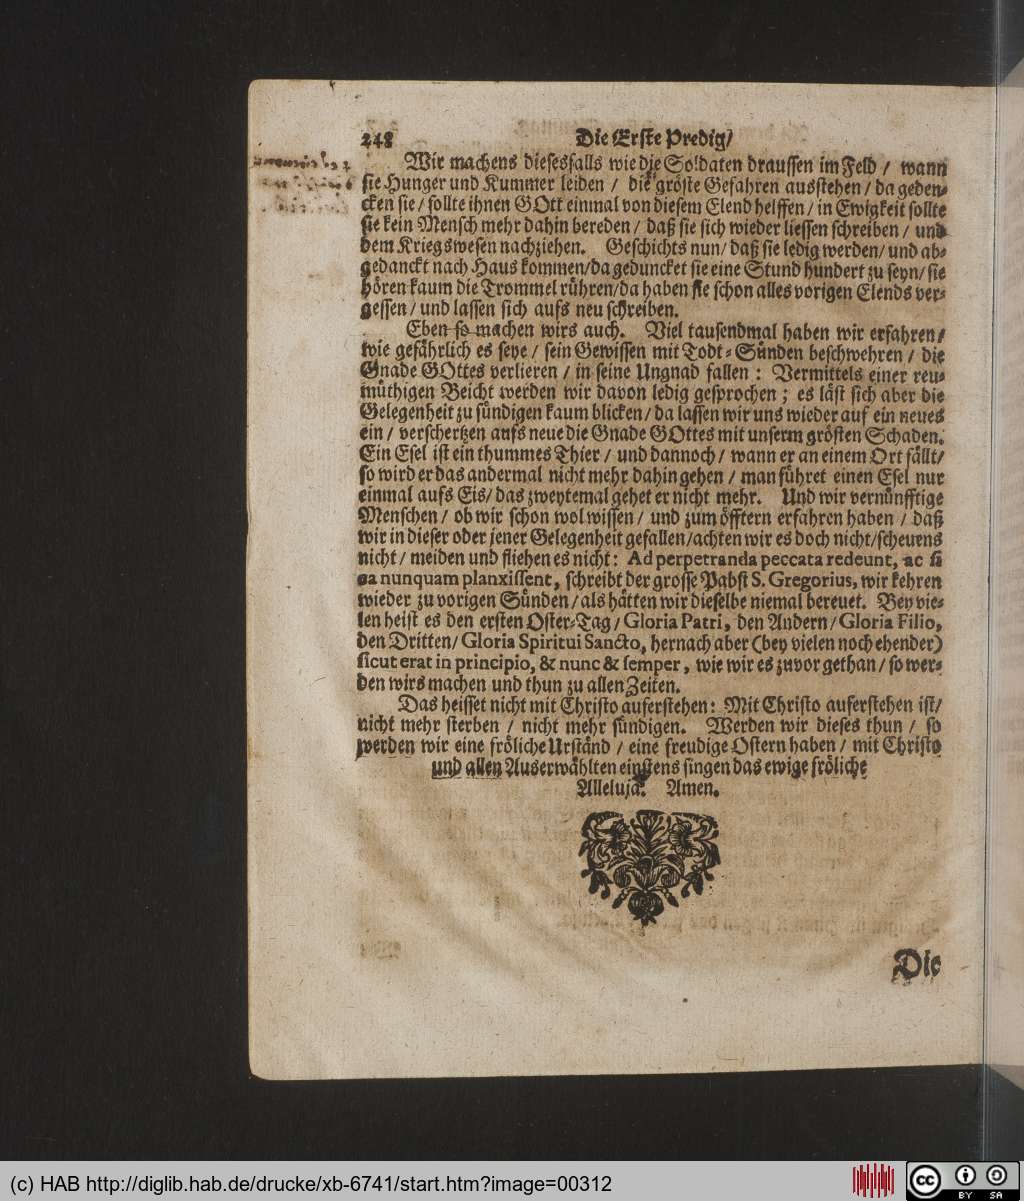 248 Die Erste Predig/
Wir machens diesesfalls wie die Soldaten draussen im Feld / wann
sie Hunger und Kummer leiden / die gröste Gefahren ausstehen / da geden-
cken sie / sollte ihnen GOtt einmal von diesem Elend helffen / in Ewigkeit sollte
sie kein Mensch mehr dahin bereden / daß sie sich wieder liessen schreiben / und
dem Kriegswesen nachziehen. Geschichts nun / daß sie ledig werden / und ab-
gedanckt nach Haus kommen/da geduncket sie eine Stund hundert zu seyn/ sie
hören kaum die Trommel rühren/da haben sie schon alles vorigen Elends ver-
gessen / und lassen sich aufs neu schreiben.
Eben so machen wirs auch. Viel tausendmal haben wir erfahren/
wie gefährlich es seye / sein Gewissen mit Todt-Sünden beschwehren / die
Gnade GOttes verlieren / in seine Ungnad fallen : Vermittels einer reu-
müthigen Beicht werden wir davon ledig gesprochen ; es läst sich aber die
Gelegenheit zu sündigen kaum blicken / da lassen wir uns wieder auf ein neues
ein / verschertzen aufs neue die Gnade GOttes mit unserm grösten Schaden.
Ein Esel ist ein thummes Thier / und dannoch / wann er an einem Ort fällt/
so wird er das andermal nicht mehr dahin gehen / man führet einen Esel nur
einmal aufs Eis/ das zweytemal gehet er nicht mehr. Und wir vernünfftige
Menschen / ob wir schon wol wissen / und zum öfftern erfahren haben / daß
wir in dieser oder jener Gelegenheit gefallen/achten wir es doch nicht/scheuens
nicht / meiden und fliehen es nicht : Ad perpetranda peccata redeunt, ac si
ea nunquam planxissent, schreibt der grosse Pabst S. Gregorius, wir kehren
wieder zu vorigen Sünden / als hätten wir dieselbe niemal bereuet. Bey vie-
len heist es den ersten Oster-Tag / Gloria Patri, den Andern / Gloria Filio,
den Dritten/ Gloria Spiritui Sancto, hernach aber (bey vielen noch ehender)
sicut erat in principio, & nunc & semper, wie wir es zuvor gethan / so wer-
den wirs machen und thun zu allen Zeiten.
Das heisset nicht mit Christo auferstehen: Mit Christo auferstehen ist/
nicht mehr sterben / nicht mehr sündigen. Werden wir dieses thun / so
werden wir eine fröliche Urständ / eine freudige Ostern haben / mit Christo
und allen Auserwählten einstens singen das ewige fröliche
Alleluja. Amen.
Die
(c) HAB http://diglib.hab.de/drucke/xb-6741/start.htm?image=00312
cc BY SA